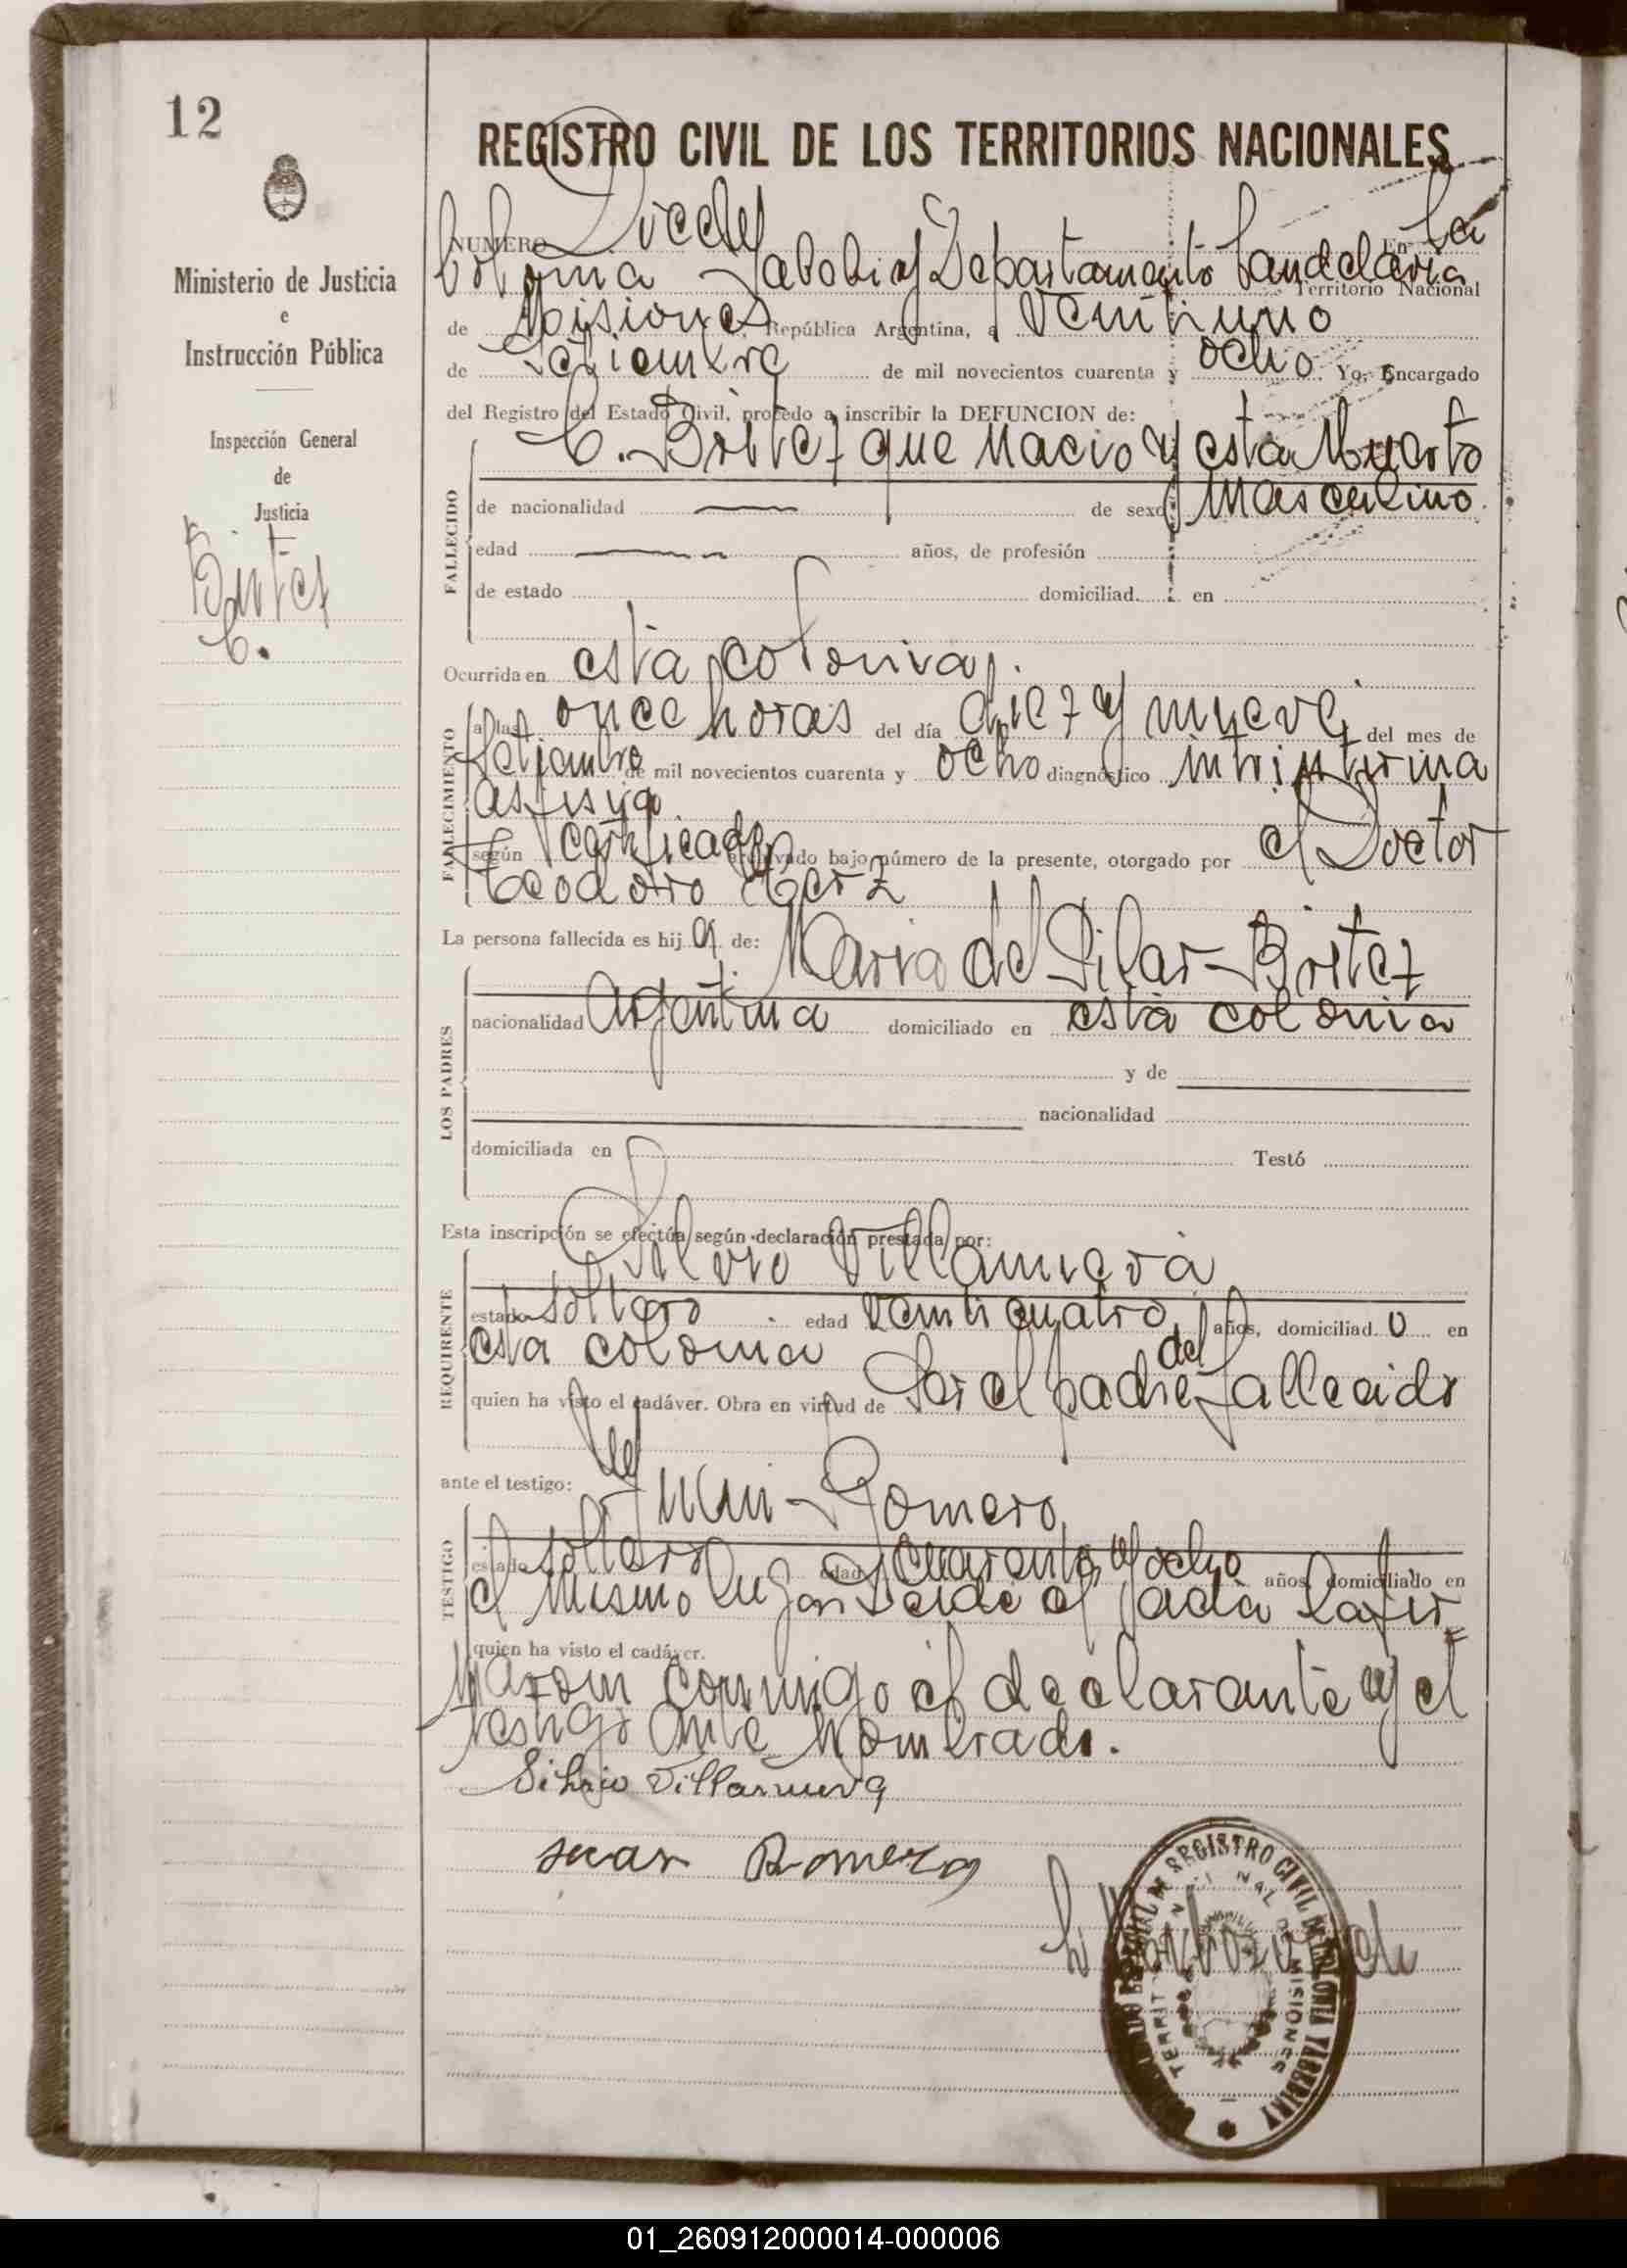 12
Ministerio de Justicia
e
Instrucción Pública
Inspección General
de
Justicia
Britez
C.
REGISTRO CIVIL DE LOS TERRITORIOS NACIONALES
NUMERO Doce En La
Colonia Yabebiry Departamento Candelaria Territorio Nacional
de Misiones República Argentina, a Veintiuno
de Setiembre de mil novecientos cuarenta y ocho Yo, Encargado
del Registro del Estado Civil, procedo a inscribir la DEFUNCION de:
C. Britez que nacio y esta Muerto
FALLECIDO
de nacionalidad de sexo Masculino
edad años, de profesión
de estado domiciliad en
Ocurrida en esta colonia.
FALLECIMIENTO
a las once horas del día diez y nueve del mes de
Setiembre de mil novecientos cuarenta y ocho diagnóstico
asfisia
según certificado archivado bajo número de la presente, otorgado por el Doctor
Teodoro
La persona fallecida es hij o de: Maria del Pilar Britez
LOS PADRES
nacionalidad Argentina domiciliado en esta colonia
y de
nacionalidad
domiciliada en Testó
Esta inscripción se efectúa según declaración prestada por:
Silvio Villanueva
REQUIRENTE
estado soltero edad veinticuatro años, domiciliad o en
esta colonia
quien ha visto el cadáver. Obra en virtud de Ser el padre del fallecido
ante el testigo: Juan Romero
TESTIGO
estado soltero edad cuarenta y ocho años, domiciliado en
el mismo lugar Leida el acta la fir=
quien ha visto el cadáver.
maron conmigo el declarante y el
testigo ante nombrado.
Silvio Villanueva
Juan Romero
REGISTRO CIVIL
MISIONES
01_260912000014-000006